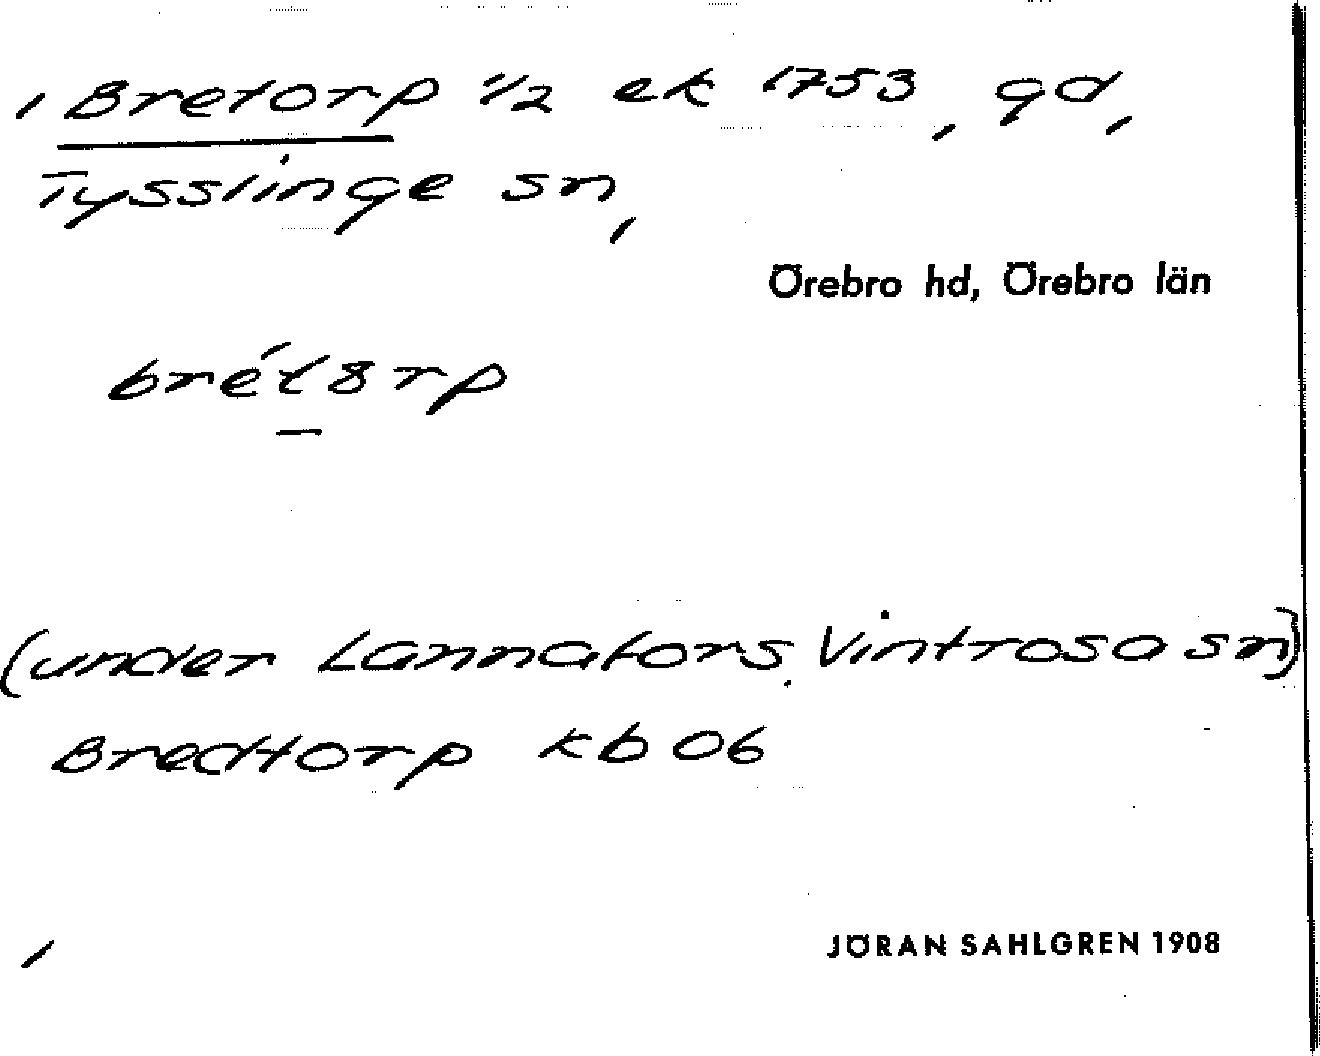 Bretorp 1/2 ek 1753, gd,
Tysslinge sn,
Örebro hd, Örebro län
brét8rp
(under Lannafors, Vintrosa sn)
Bredtorp kb 06
JÖRAN SAHLGREN 1908